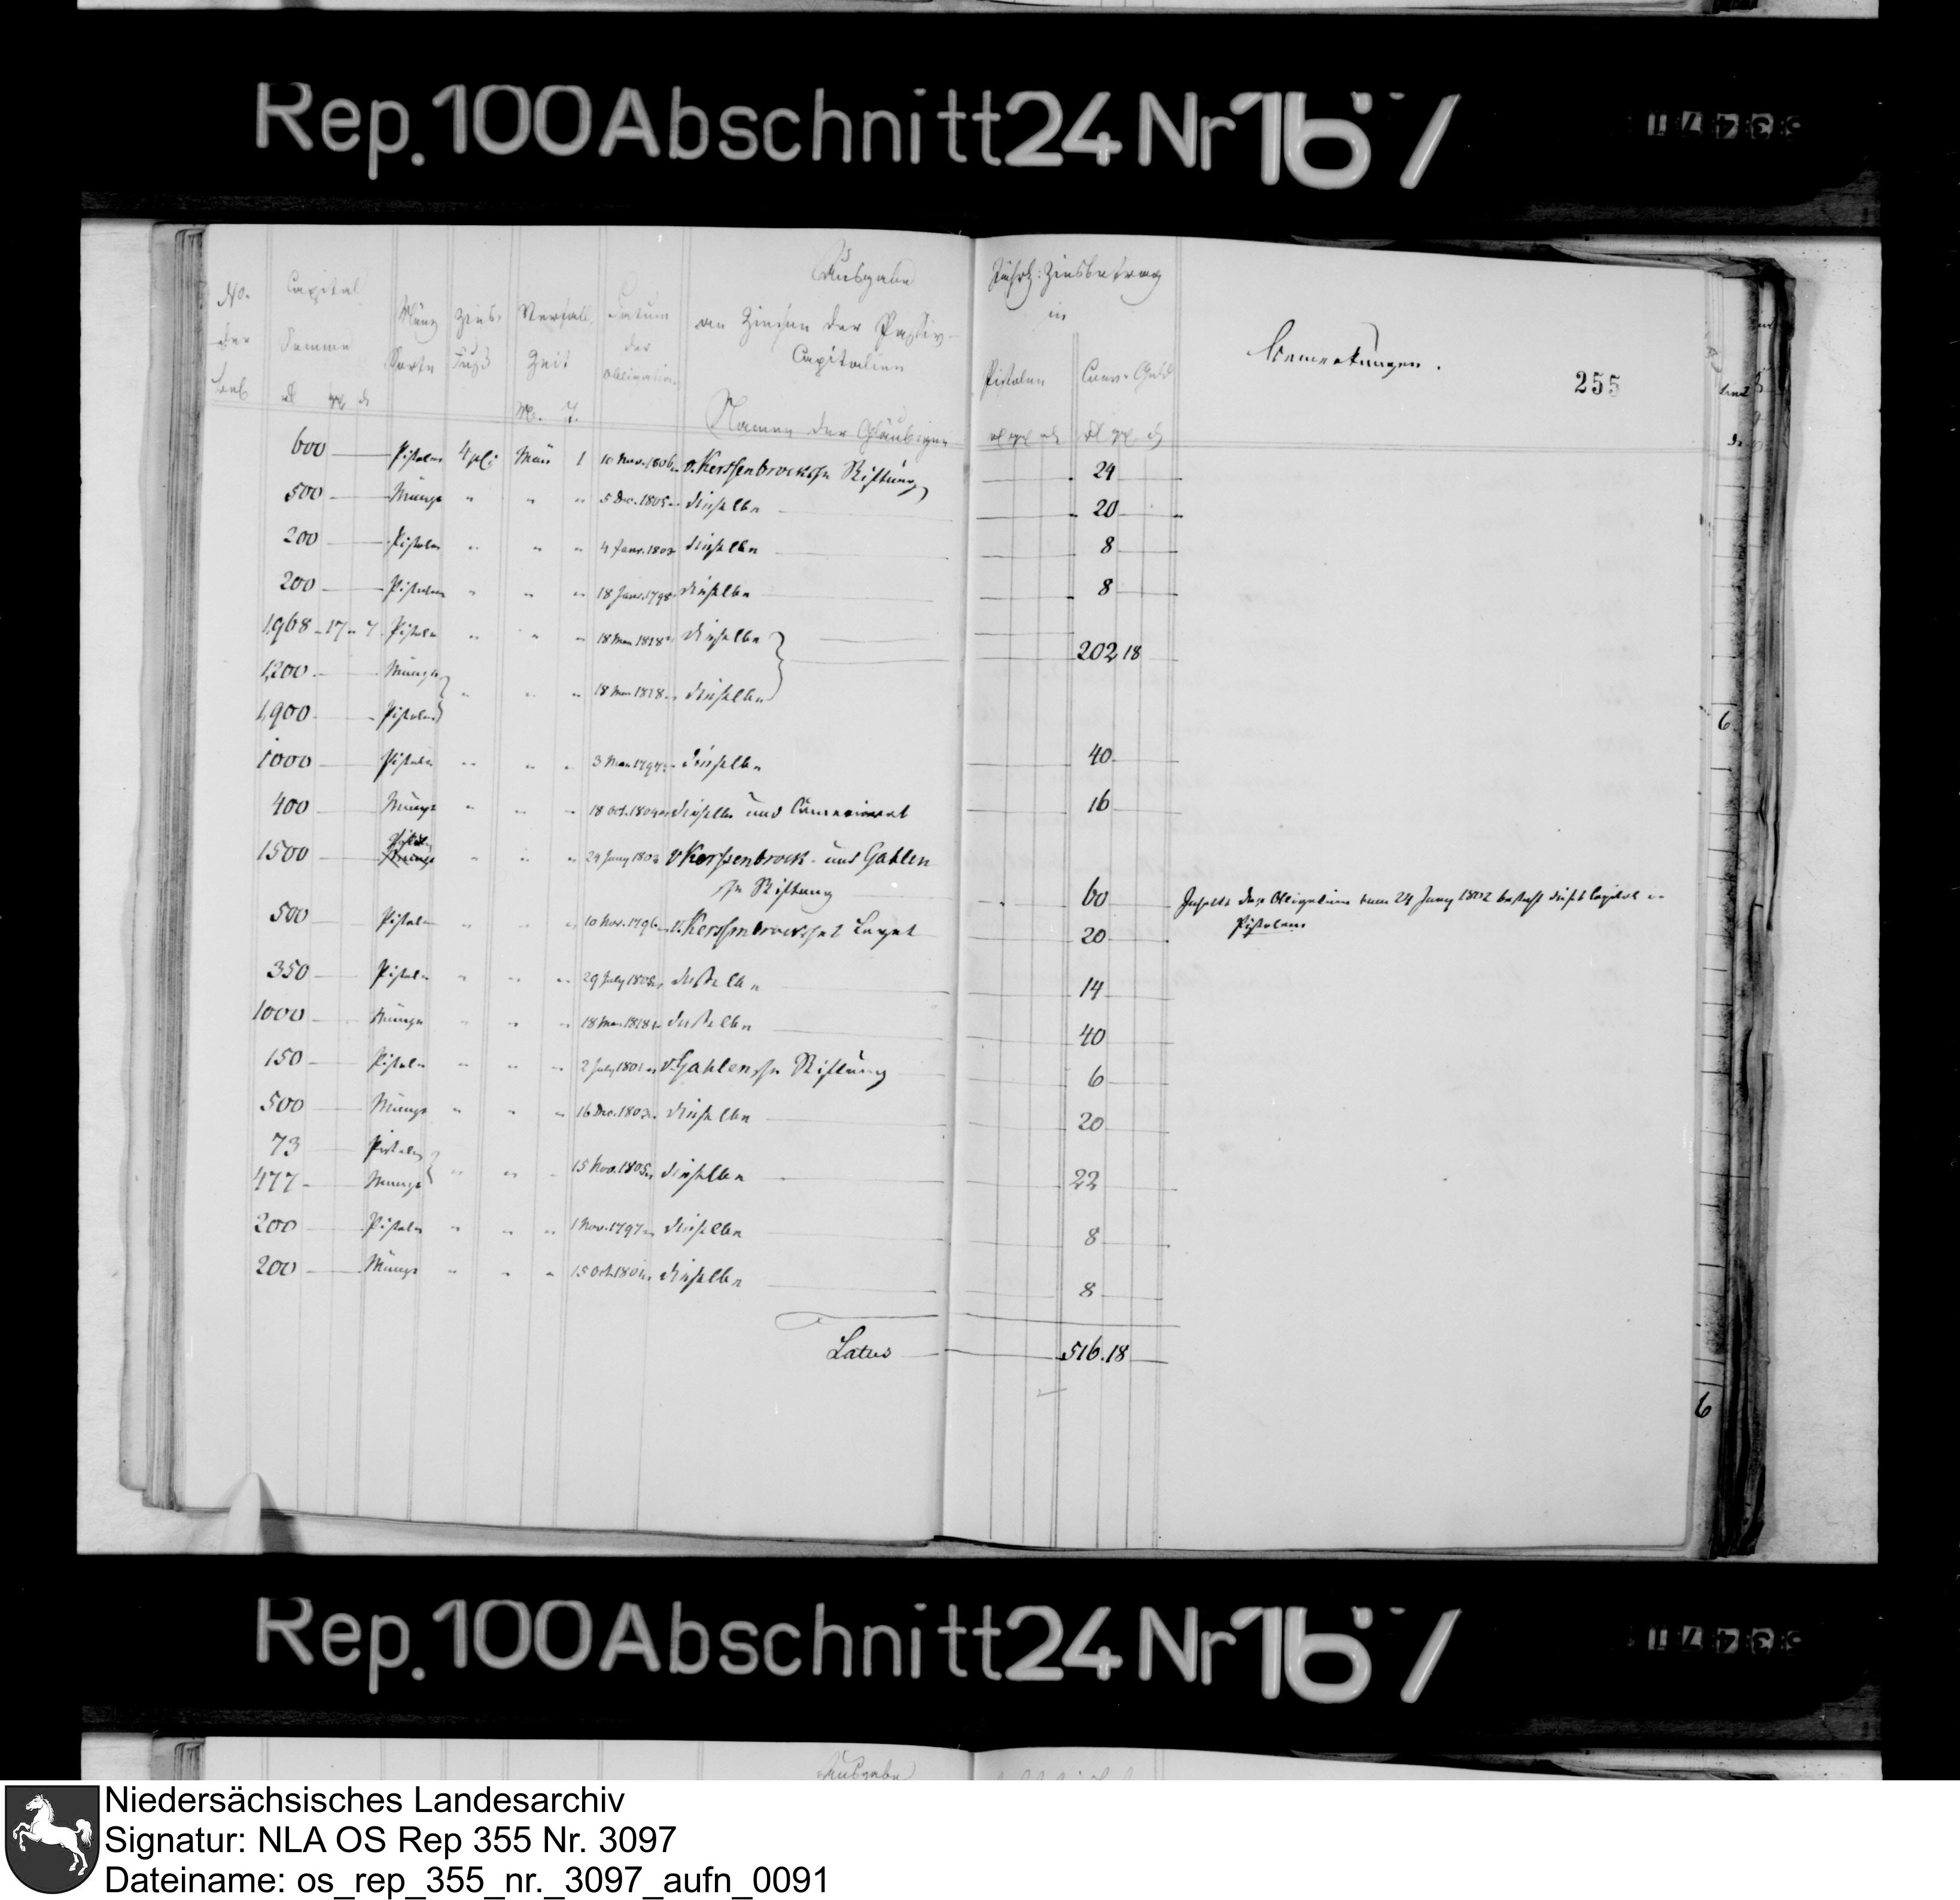 Rep. 100 Abschnitt 24 Nr 167
53471
No. der
Capital Summe
Münz Sorte
Zins Fuß
Verfall Zeit
M. T.
Datum der Obligation
Ausgabe
an Zinsen der Passiv-
Capitalien
Namen der Gläubiger
Jährl: Zinsbetrag
in
Pistolen
Conv. Geld
Bemerkungen.
255
600 Pistolen 4 pC: Mai 1 10 Nov. 1806 v. Kerssenbrocksche Stiftung 24
500 Münze " " " 5 Dec. 1805 dieselbe 20
200 Pistolen " " " 4 Janr. 1802 dieselbe 8
200 Pistolen " " " 18 Janr. 1798 dieselbe 8
1,968 - 17 - 7 Pistolen " " " 18 Mai 1818 dieselbe
202 18
1,200 Münze
" " " 18 Mai 1818 dieselbe
1,900 Pistolen
1000 Pistolen " " " 3 Mai 1797 dieselbe 40
400 Münze " " " 18 Oct. 1804 dieselbe und 16
1500 Pistolen Münze " " " 24 Juny 1802 v Kerssenbrock- und Galen
sche Stiftung 60 Inhalts der Obligation vom 24 Juny 1802 besteht dieses Capital in
Pistolen
500 Pistolen " " " 10 Nov. 1796 v. Kerssenbrocksches Legat 20
350 Pistolen " " " 29 July 1805 dasselbe 14
1000 Münze " " " 18 Mai 1818 dasselbe 40
150 Pistolen " " " 2 July 1801 v. Galensche Stiftung 6
500 Münze " " " 16 Dec. 1803 dieselbe 20
73 Pistolen
" " " 15 Nov. 1805 dieselbe 22
477 Münze
200 Pistolen " " " 1 Nov. 1797 dieselbe 8
200 Münze " " " 15 Oct. 1801 dieselbe 8
Latus 516. 18
6
6
Rep. 100 Abschnitt 24 Nr 167
53471
Ausgabe
Niedersächsisches Landesarchiv
Signatur: NLA OS Rep 355 Nr. 3097
Dateiname: os_rep_355_nr._3097_aufn_0091